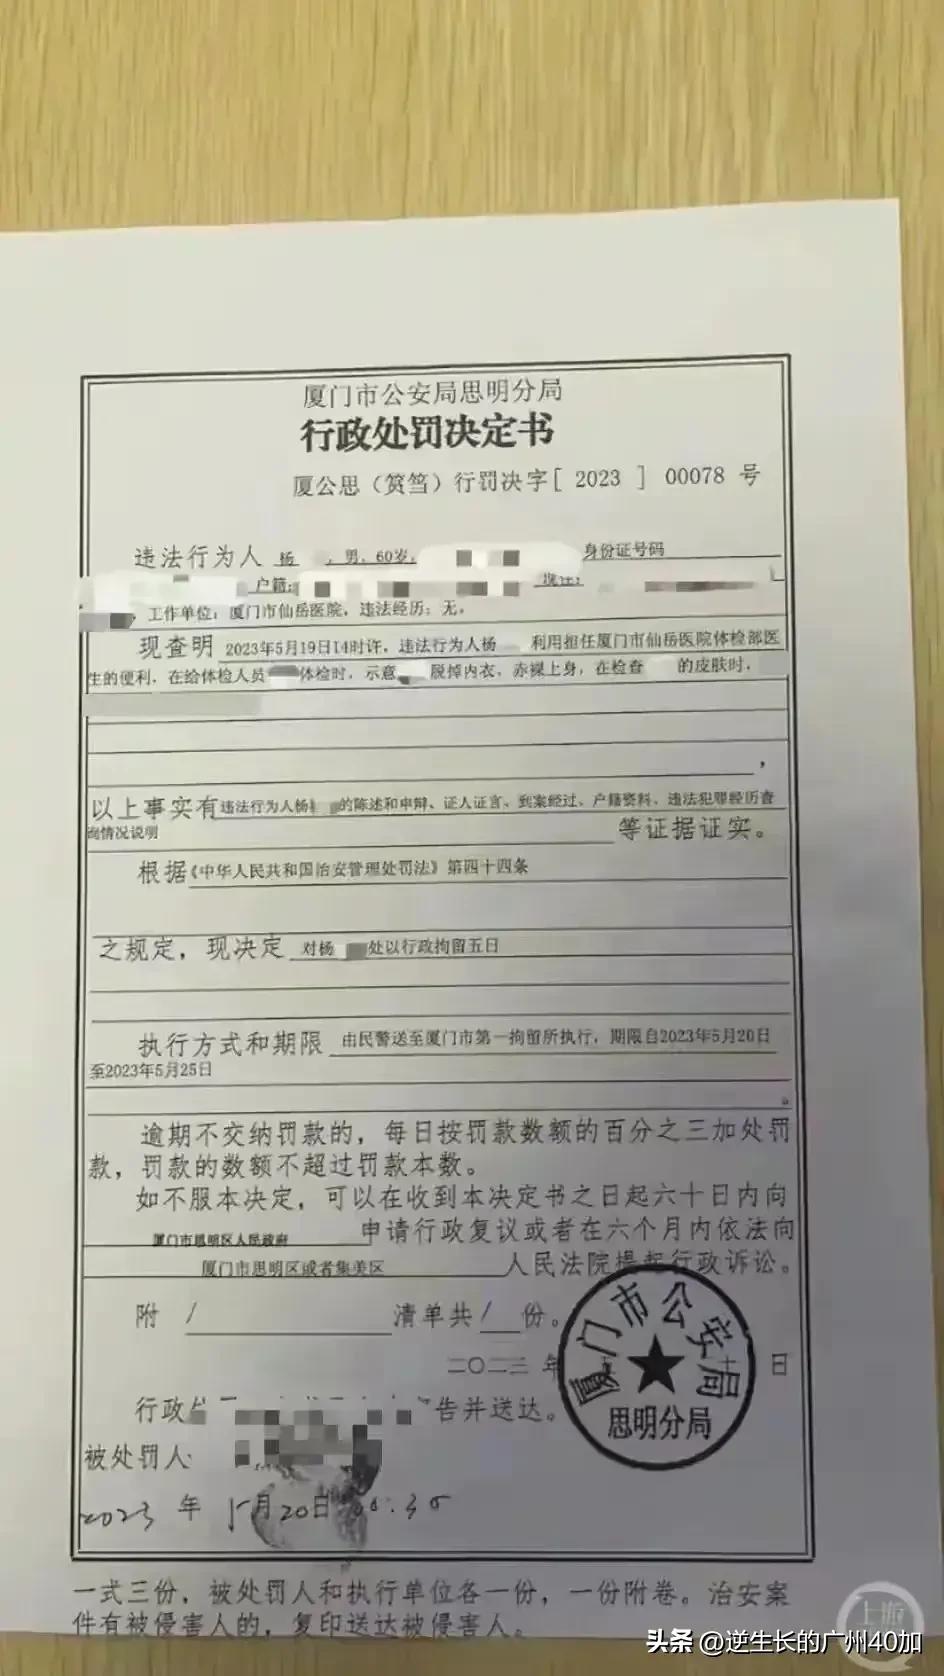 厦门市公安局思明分局
行政处罚决定书
厦公思（筼筜）行罚决字[ 2023 ] 00078 号
违法行为人 杨 ，男，60岁， 身份证号码
户籍： 现住：
，工作单位：厦门市仙岳医院，违法经历：无。
现查明 2023年5月19日14时许，违法行为人杨 利用担任厦门市仙岳医院体检部医
生的便利，在给体检人员 体检时，示意 脱掉内衣，赤裸上身，在检查 的皮肤时，
，
以上事实有 违法行为人杨 的陈述和申辩、证人证言、到案经过、户籍资料、违法犯罪经历查
询情况说明 等证据证实。
根据《中华人民共和国治安管理处罚法》第四十四条
之规定，现决定 对杨 处以行政拘留五日
执行方式和期限 由民警送至厦门市第一拘留所执行，期限自2023年5月20日
至2023年5月25日
。
逾期不交纳罚款的，每日按罚款数额的百分之三加处罚
款，罚款的数额不超过罚款本数。
如不服本决定，可以在收到本决定书之日起六十日内向
厦门市思明区人民政府 申请行政复议或者在六个月内依法向
厦门市思明区或者集美区 人民法院提起行政诉讼。
附 / 清单共 / 份。
厦门市公安局
思明分局
二〇二三 年 日
行政 告并送达。
被处罚人
2023 年 5月20日 :30
一式三份，被处罚人和执行单位各一份，一份附卷。治安案
件有被侵害人的，复印送达被侵害人。
上游
头条 @逆生长的广州40加